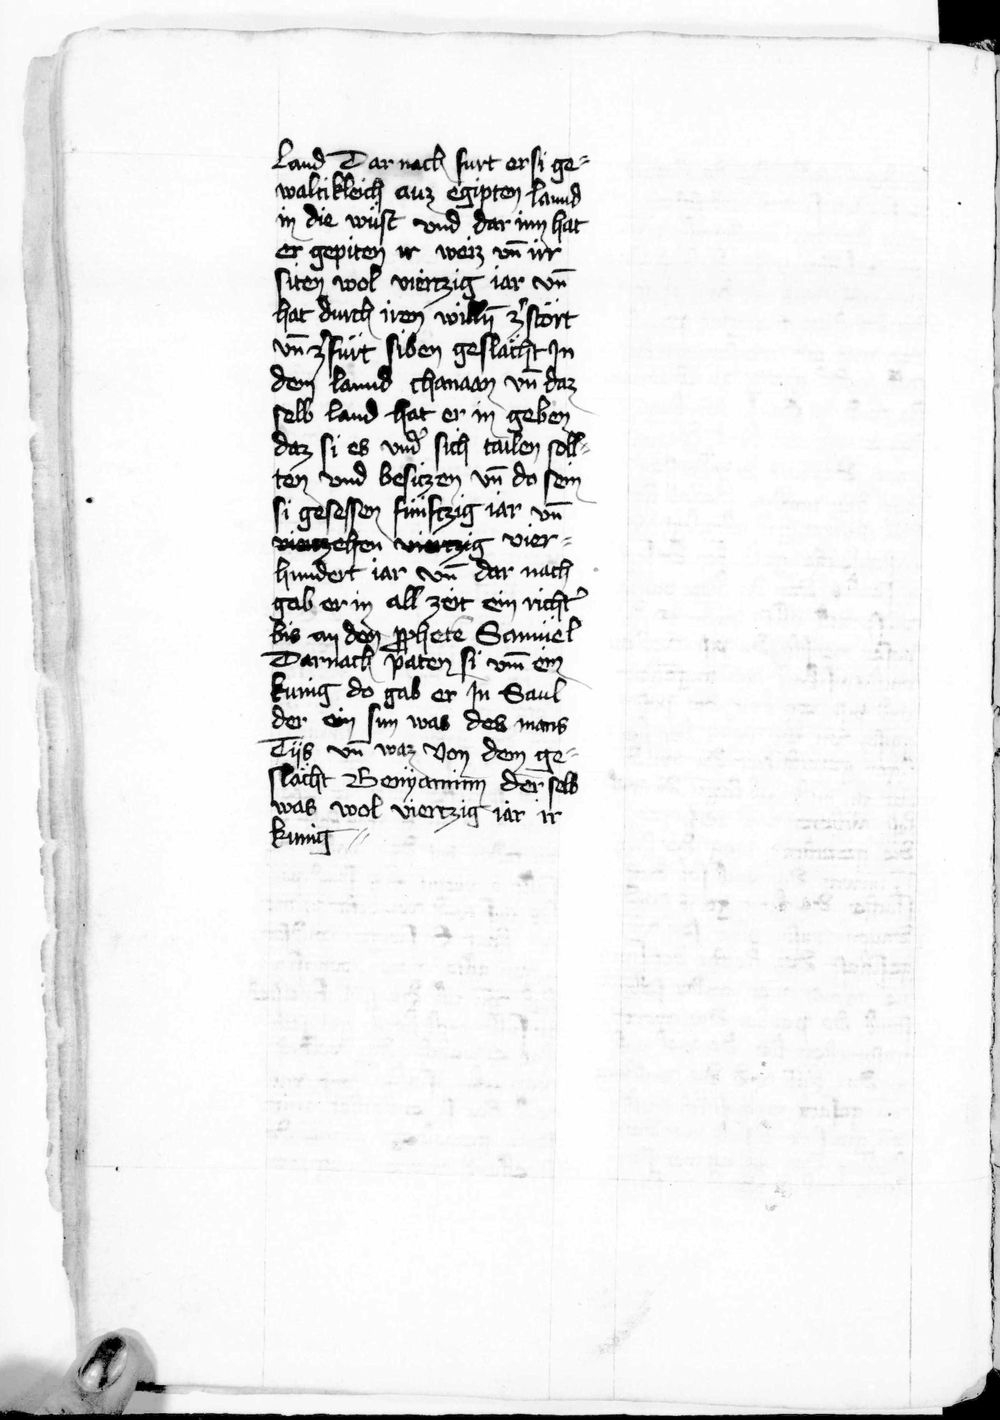 Land Dar nach furt er si ge⸗
waltikleich auz egipten lannd
in die wüst vnd dar inn hat
er gepiten ir weiz vn̄ irr
siten wol viertzig iar vn̄
hat durch iren willn̄ zerstört
vn̄ zerfürt siben geslächt In
dem lannd chanaan vn̄ daz
selb land hat er in geben
daz si es vnder sich tailen soll⸗
ten vnd besitzen vn̄ do sein
si gesessen fünftzig iar vn̄
viertzehen viertzig vier⸗
hundert iar vn̄ dar nach
gab er in all zeit ein richter
bis an den prophete Samüel
Darnach paten si vm̄ ein
kunig do gab er In Saul
der ein sun was des mans
Tijs vn̄ waz von dem ge⸗
slächt Benyaminn der selb
was wol viertzig iar ir
kunig //